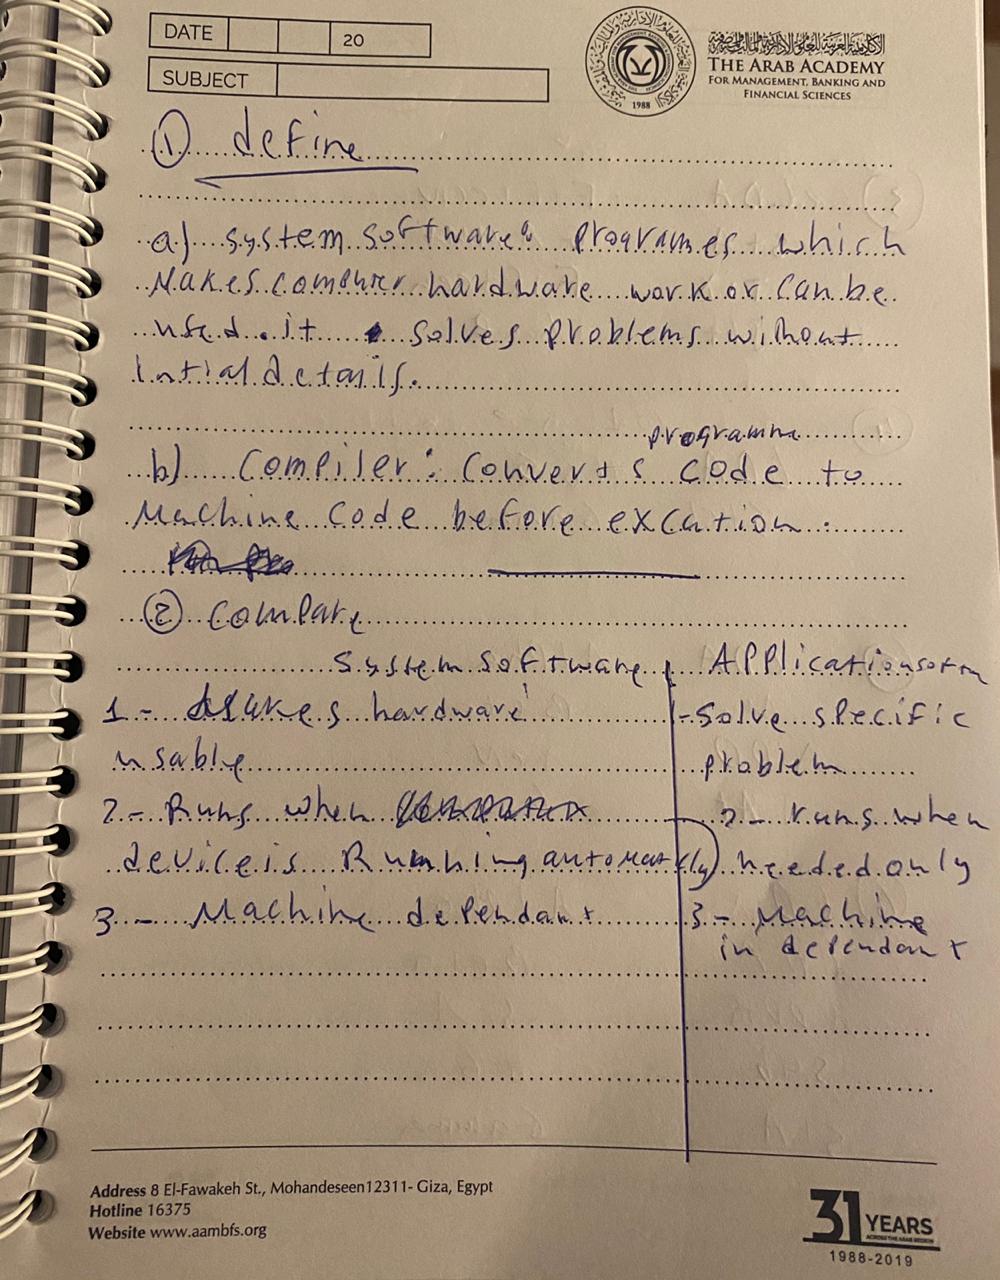 DATE 20
SUBJECT
1988
THE ARAB ACADEMY
FOR MANAGEMENT, BANKING AND
FINANCIAL SCIENCES
① define
a) system software: programes which
Makes computer hardware work or can be
used. it solves problems without
intial details.
programme
b) Compiler: Converts code to
Machine Code before excation.
② Compare
System software Application softw
1- Makes hardware 1- Solve specific
usable problem
2- Runs when 2- runs when
device is Running automatkly needed only
3- Machine dependant 3- Machine
in dependant
Address 8 El-Fawakeh St., Mohandeseen12311- Giza, Egypt
Hotline 16375
Website www.aambfs.org
31 YEARS
ACROSS THE ARAB REGION
1988-2019